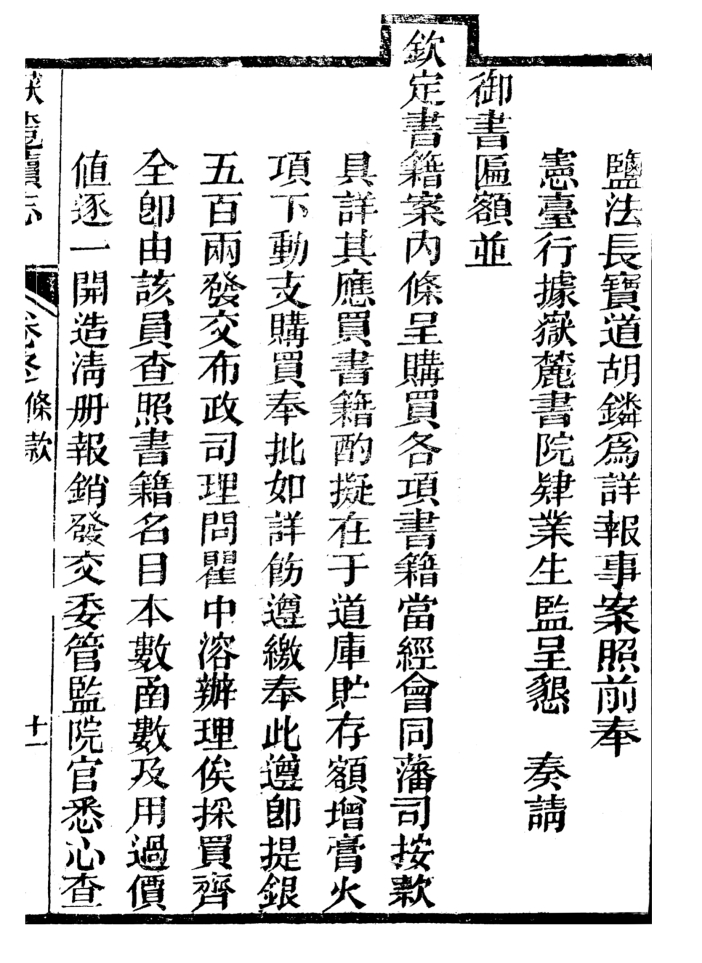 鹽法長寶道胡鏻爲詳報事案照前奉
憲臺行據嶽麓書院肄業生監呈懇　奏請
御書匾額並
欽定書籍案內條呈購買各項書籍當經會同藩司按款
具詳其應買書籍酌擬在于道庫貯存額增膏火
項下動支購買奉批如詳飭遵繳奉此遵卽提銀
五百兩發交布政司理問瞿中溶辦理俟採買齊
全卽由該員查照書籍名目本數函數及用過價
值逐一開造淸册報銷發交委管監院官悉心查
條款
十一